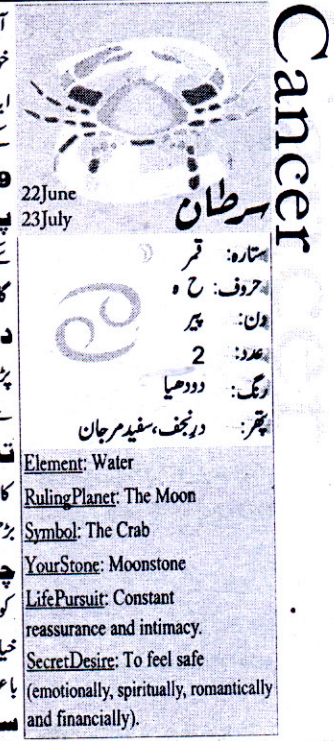 Cancer
22June
23July
سرطان
ستارہ: قمر
حروف: ح ہ
دن: پیر
عدد: 2
رنگ: دودھیا
پتھر: درنجف، سفیدمرجان
Element: Water
RulingPlanet: The Moon
Symbol: The Crab
YourStone: Moonstone
LifePursuit: Constant
reassurance and intimacy.
SecretDesire: To feel safe
(emotionally, spiritually, romantically
and financially).